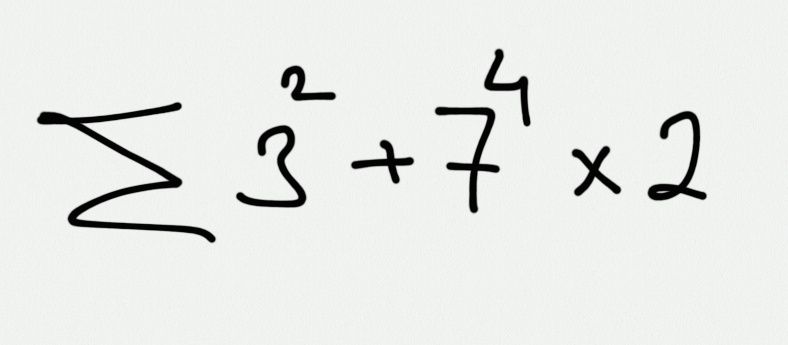 ∑ 3² + 7⁴ × 2